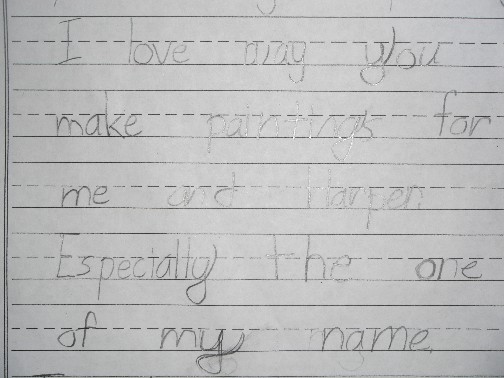 I love way you
make paintings for
me and Harper.
Especially the one
of my name.